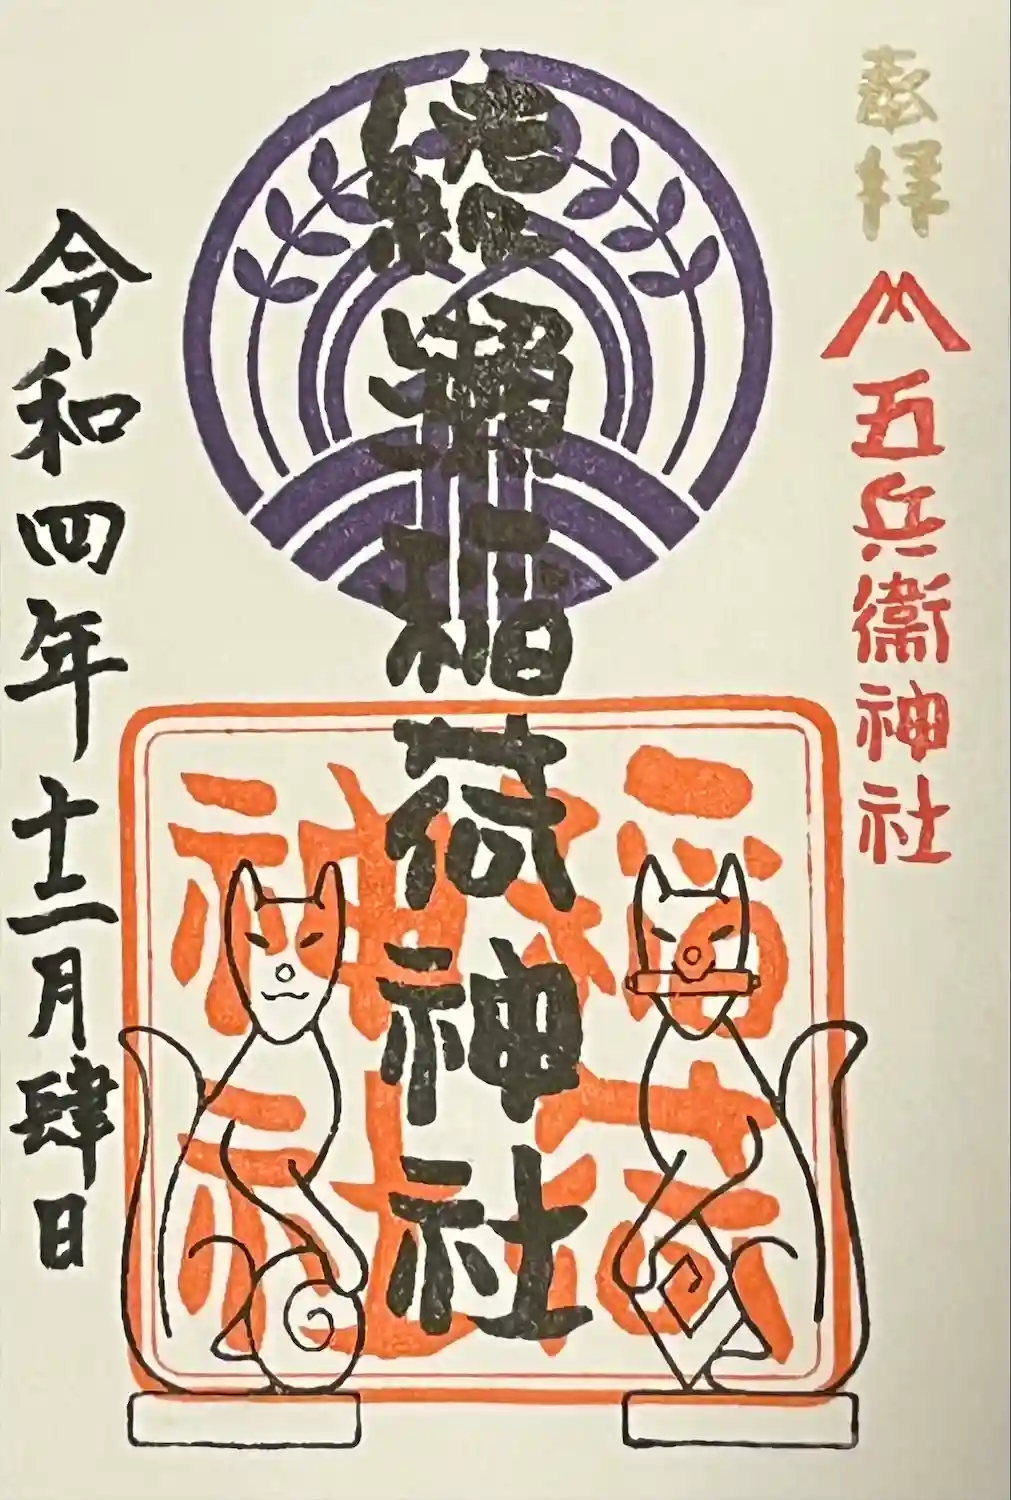 奉拝
五兵衛神社
綾瀬稲荷神社
稲荷
神社
令和四年十二月肆日